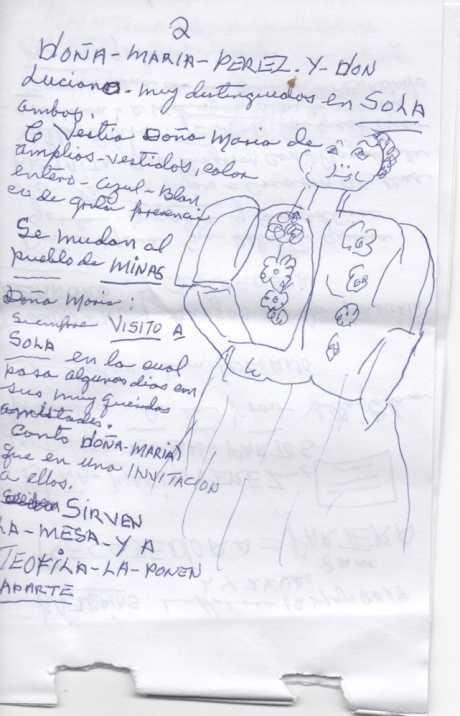 2
DOÑA-MARIA-PEREZ-Y-DON
Luciano-muy distinguidos en SOLA
ambos.
Vestia Doña Maria de
amplios-vestidos, color
entero-azul-Blan
co de grata presencia
Se mudan al
pueblo de MINAS
Doña Maria:
siempre VISITO A
SOLA en la cual
pasa algunos dias con
sus muy queridas
amistades.
Conto DOÑA-MARIA
que en una INVITACION
a ellos.
SIRVEN
LA-MESA-Y A
TEOFILA-LA-PONEN
APARTE